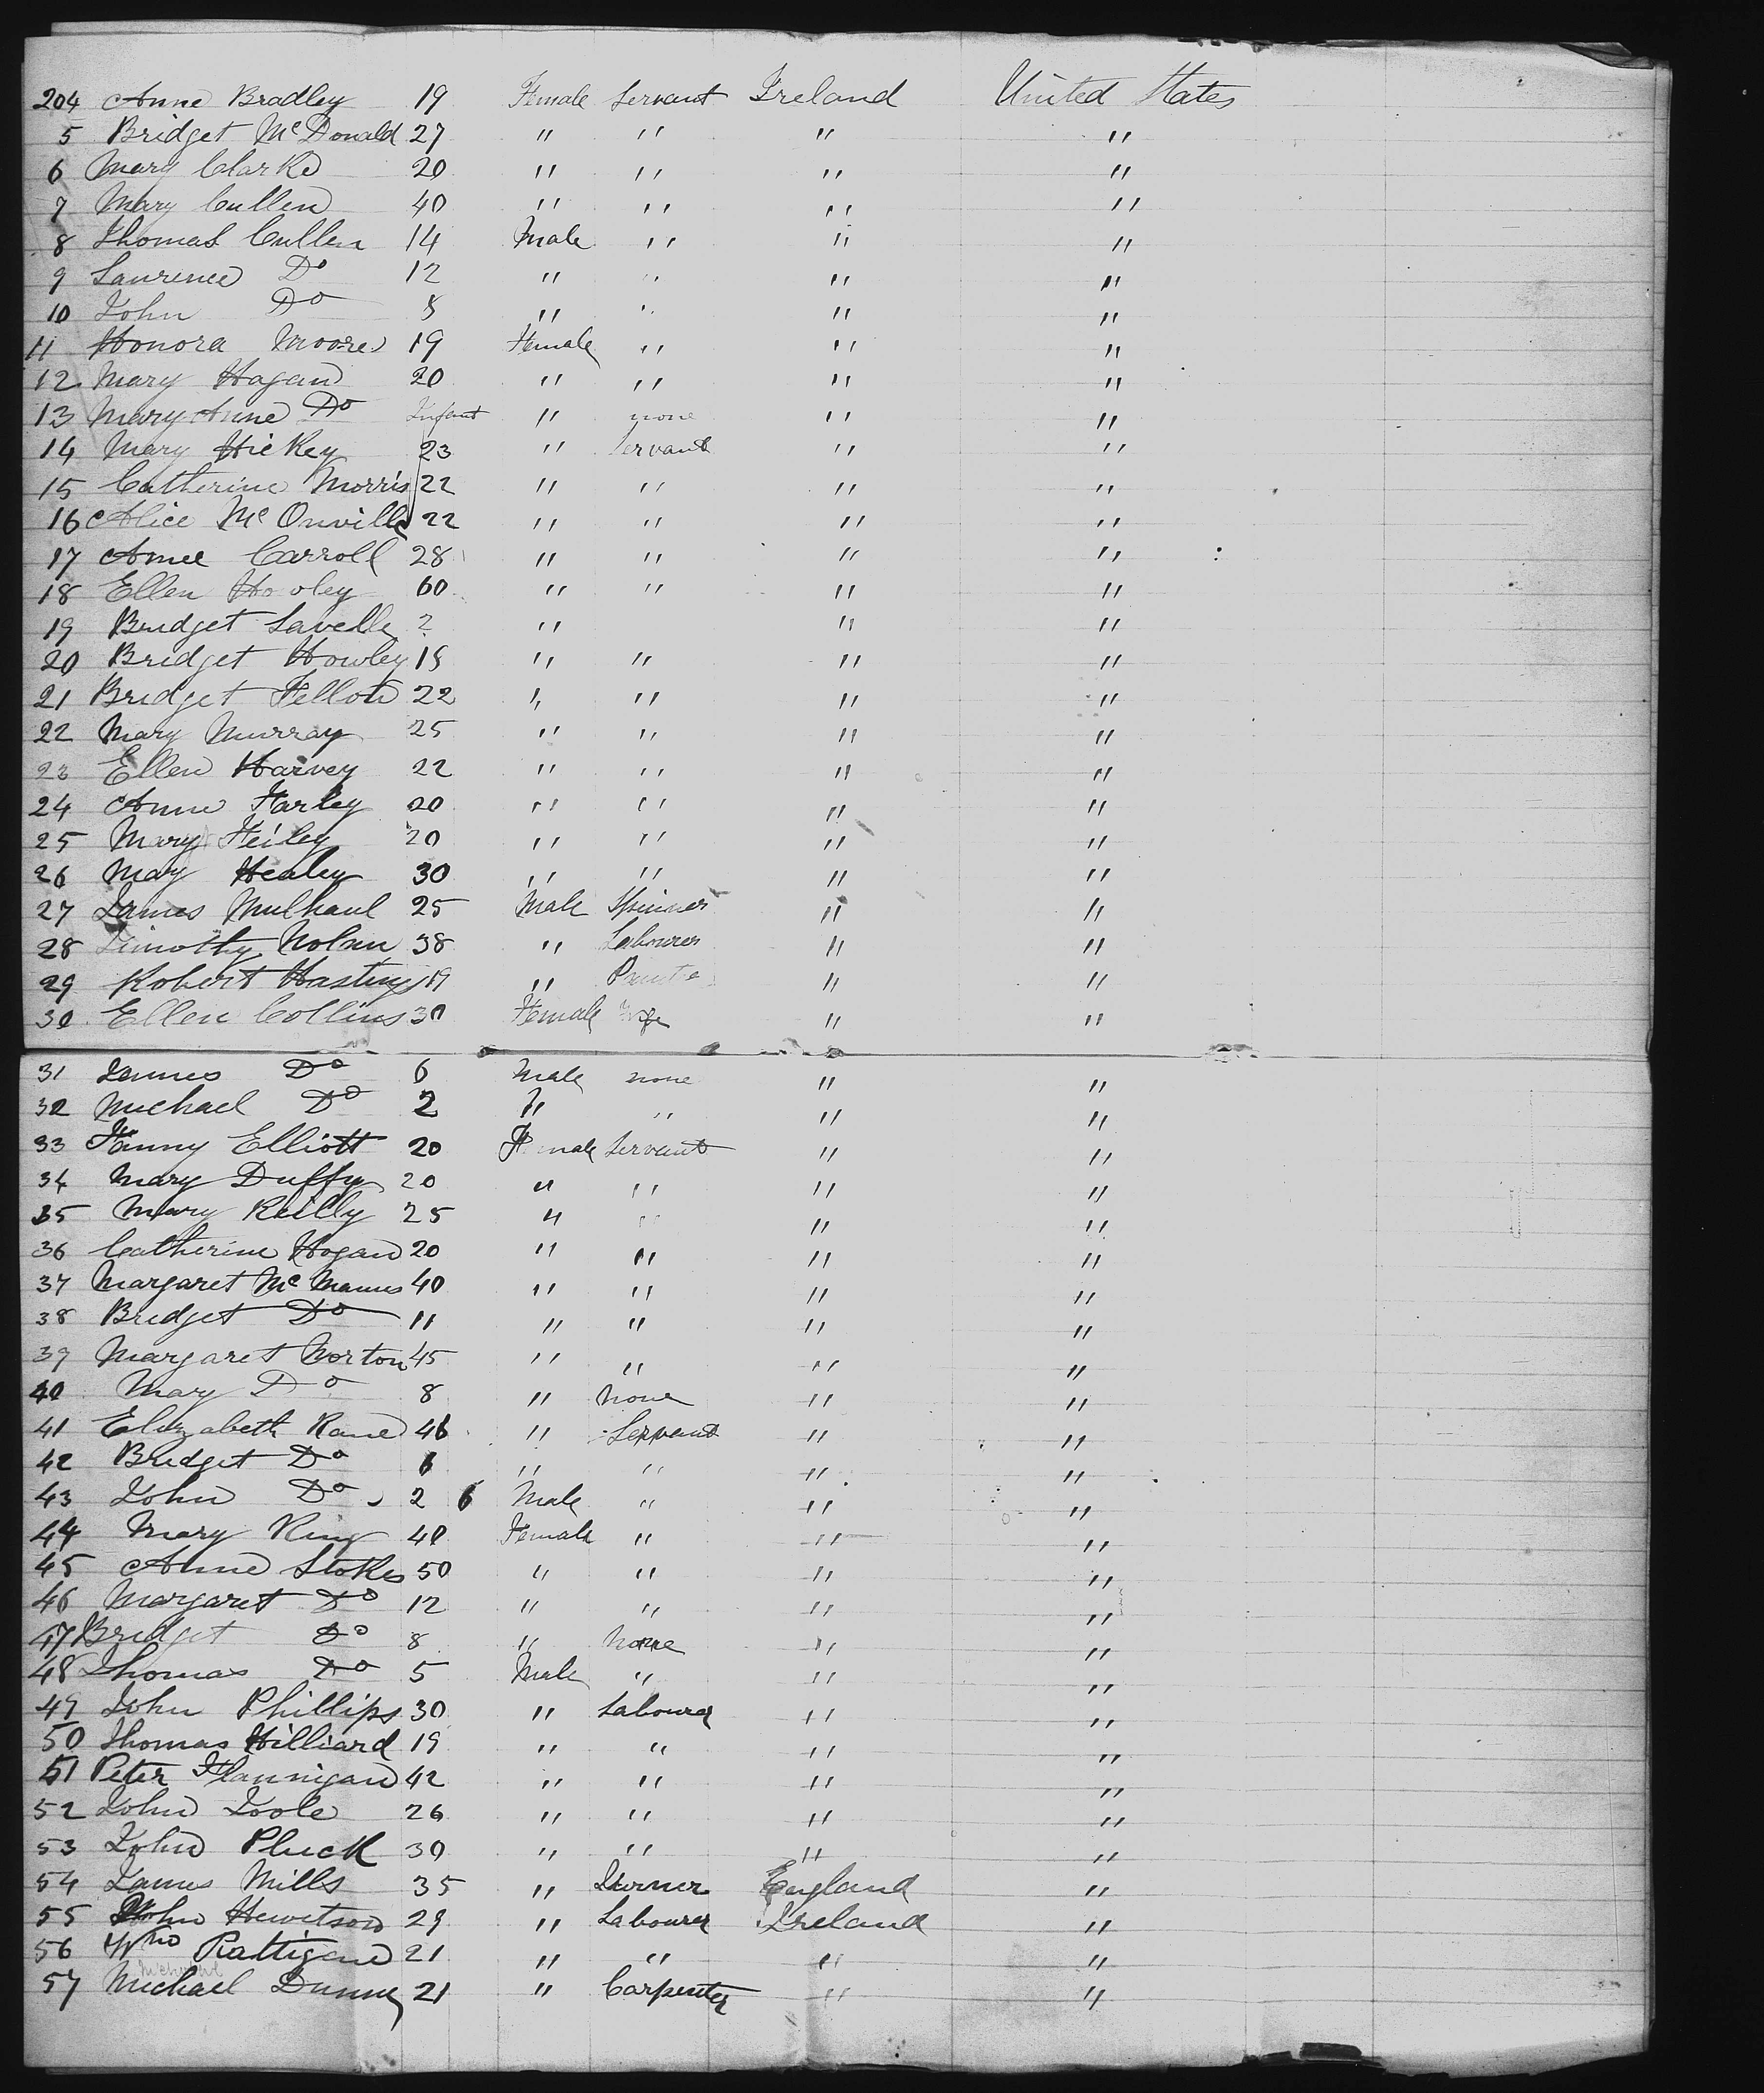 204 Anne Bradley 19 Female Servant Ireland United States
5 Bridget McDonald 27 " " " "
6 Mary Clarke 20 " " " "
7 Mary Cullen 40 " " " "
8 Thomas Cullen 14 Male " " "
9 Lawrence Do 12 " " " "
10 John Do 8 " " " "
11 Honora Moore 19 Female " " "
12 Mary Hagan 20 " " " "
13 Mary Anne Do Infant " none " "
14 Mary Hickey 23 " Servant " "
15 Catherine Morris 22 " " " "
16 Alice McOnville 22 " " " "
17 Anne Carroll 28 " " " "
18 Ellen Howley 60 " " " "
19 Bridget Lavelle 2 " " "
20 Bridget Howley 18 " " " "
21 Bridget Fellon 22 " " " "
22 Mary Murray 25 " " " "
23 Ellen Harvey 22 " " " "
24 Anne Farley 20 " " " "
25 Mary 20 " " " "
26 Mary Healey 30 " " " "
27 James Mulhaul 25 Male Spinner " "
28 Timothy Nolan 38 " Labourer " "
29 Robert Hastings 19 " " "
30 Ellen Collins 30 Female Wife " "
31 James Do 6 Male none " "
32 Michael Do 2 " " " "
33 Fanny Elliott 20 Female Servant " "
34 Mary Duffy 20 " " " "
35 Mary Reilly 25 " " " "
36 Catherine Hogan 20 " " " "
37 Margaret McManus 40 " " " "
38 Bridget Do 11 " " " "
39 Margaret Norton 45 " " " "
40 Mary Do 8 " None " "
41 Elizabeth Kane 46 " Servant " "
42 Bridget Do 6 " " " "
43 John Do 2 6 Male " " "
44 Mary King 40 Female " " "
45 Anne Stokes 50 " " " "
46 Margaret Do 12 " " " "
47 Bridget Do 8 " None " "
48 Thomas Do 5 Male " " "
49 John Phillips 30 " Labourer " "
50 Thomas Hilliard 19 " " " "
51 Peter Flannigan 42 " " " "
52 John Toole 26 " " " "
53 John Pluck 30 " " " "
54 James Mills 35 " Turner England "
55 John Hewitson 29 " Labourer Ireland "
56 Rattigan 21 " " " "
57 Michael Dunne 21 " Carpenter " "